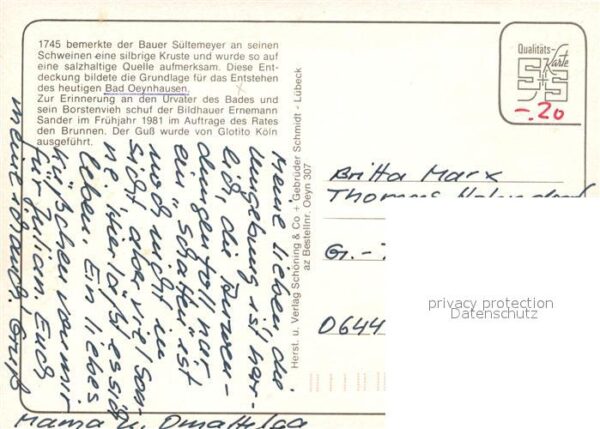 1745 bemerkte der Bauer Sültemeyer an seinen
Schweinen eine silbrige Kruste und wurde so auf
eine salzhaltige Quelle aufmerksam. Diese Ent-
deckung bildete die Grundlage für das Entstehen
des heutigen Bad Oeynhausen.
Zur Erinnerung an den Urvater des Bades und
sein Borstenvieh schuf der Bildhauer Ernemann
Sander im Frühjahr 1981 im Auftrage des Rates
den Brunnen. Der Guß wurde von Glotito Köln
ausgeführt.
Qualitäts-
Karte
-.20
Herst. u. Verlag Schöning & Co + Gebrüder Schmidt - Lübeck
az Bestellnr. Oeyn 307
Meine Lieben, die
Umgebung ist herr-
lich, die Anwen-
dungen toll nur
ein "Schatten" ist
noch nicht in
Sicht aber viel Son-
ne. Hier läßt es sich
leben. Ein liebes
Küßchen von mir
für Julian. Euch
Gruß
Mama u. Oma Helga
Britta Marx
Thomas
G.-
0644
privacy protection
Datenschutz